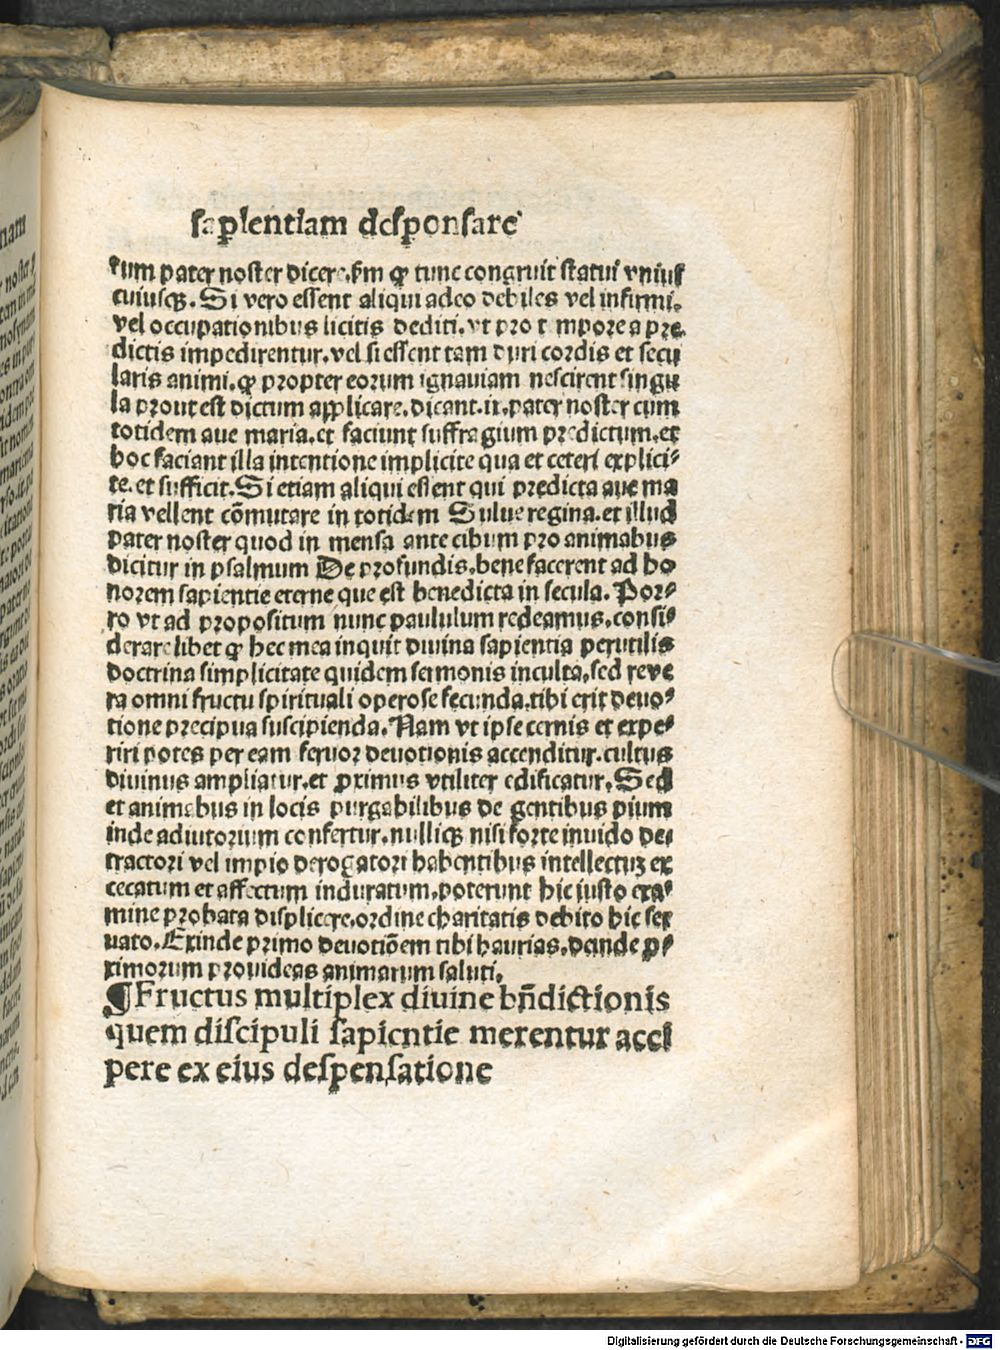 sapientiam desponsare
rum pater noster dicere. ẜm ꝙ tunc congruit statui vniuſ
cuiusqꝫ. Si vero essent aliqui adeo debiles vel infirmi.
vel occupationibus licitis dediti. vt pro tempore a pre
dictis impedirentur. vel si essent tam duri cordis et secu
laris animi. ꝙ propter eorum ignauiam nescirent singu
la prout est dictum applicare. dicant. ix. pater noster cum
totidem aue maria. et faciunt suffragium predictum. et
hoc faciant illa intentione implicite qua et ceteri explici⸗
te. et sufficit. Si etiam aliqui essent qui predicta aue ma
ria vellent cōmutare in totidem Salue regina. et illud
pater noster quod in mensa ante cibum pro animabus
dicitur in psalmum De profundis. bene facerent ad ho
norem sapientie eterne que est benedicta in secula. Por⸗
ro vt ad propositum nunc paululum redeamus. consi⸗
derare libet ꝙ hec mea inquit diuina sapientia perutilis
doctrina simplicitate quidem sermonis inculta, sed reve
ra omni fructu spirituali operose fecunda. tibi erit deuo⸗
tione precipua suscipienda. Nam vt ipse cernis et expe⸗
riri potes per eam feruor deuotionis accenditur. cultus
diuinus ampliatur. et ꝓximus vtiliter edificatur. Sed
et animabus in locis purgabilibus de gentibus pium
inde adiutorium confertur. nulliqꝫ nisi forte inuido de⸗
tractori vel impio derogatori habentibus intellectuꝫ ex
cecatum et affectum induratum. poterunt hic iusto exa⸗
mine probata displicere. ordine charitatis debito hic ser
uato. Exinde primo deuotiōem tibi haurias. deinde ꝓ⸗
ximorum prouideas animarum saluti.
¶Fructus multiplex diuine bn̄dictionis
quem discipuli sapientie merentur acci
pere ex eius despensatione
Digitalisierung gefördert durch die Deutsche Forschungsgemeinschaft - DFG